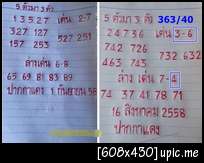 5 ตัวมา 3 ตัว
1 3 5 2 7 เด่น 2-7
327 127
527 251
157 253
ล่างเด่น 6-8
65 69 81 83 89
ปากกาแดง 1 กันยายน 58
5 ตัวมา 3 ตัว 363/40
2 4 7 3 6 เด่น 3-6
463 467
742 726 732 632
743 746 463
ล่าง เด่น 7-4
74 37 41 78 71
16 สิงหาคม 2558
ปากกาแดง
[608x430] upic.me